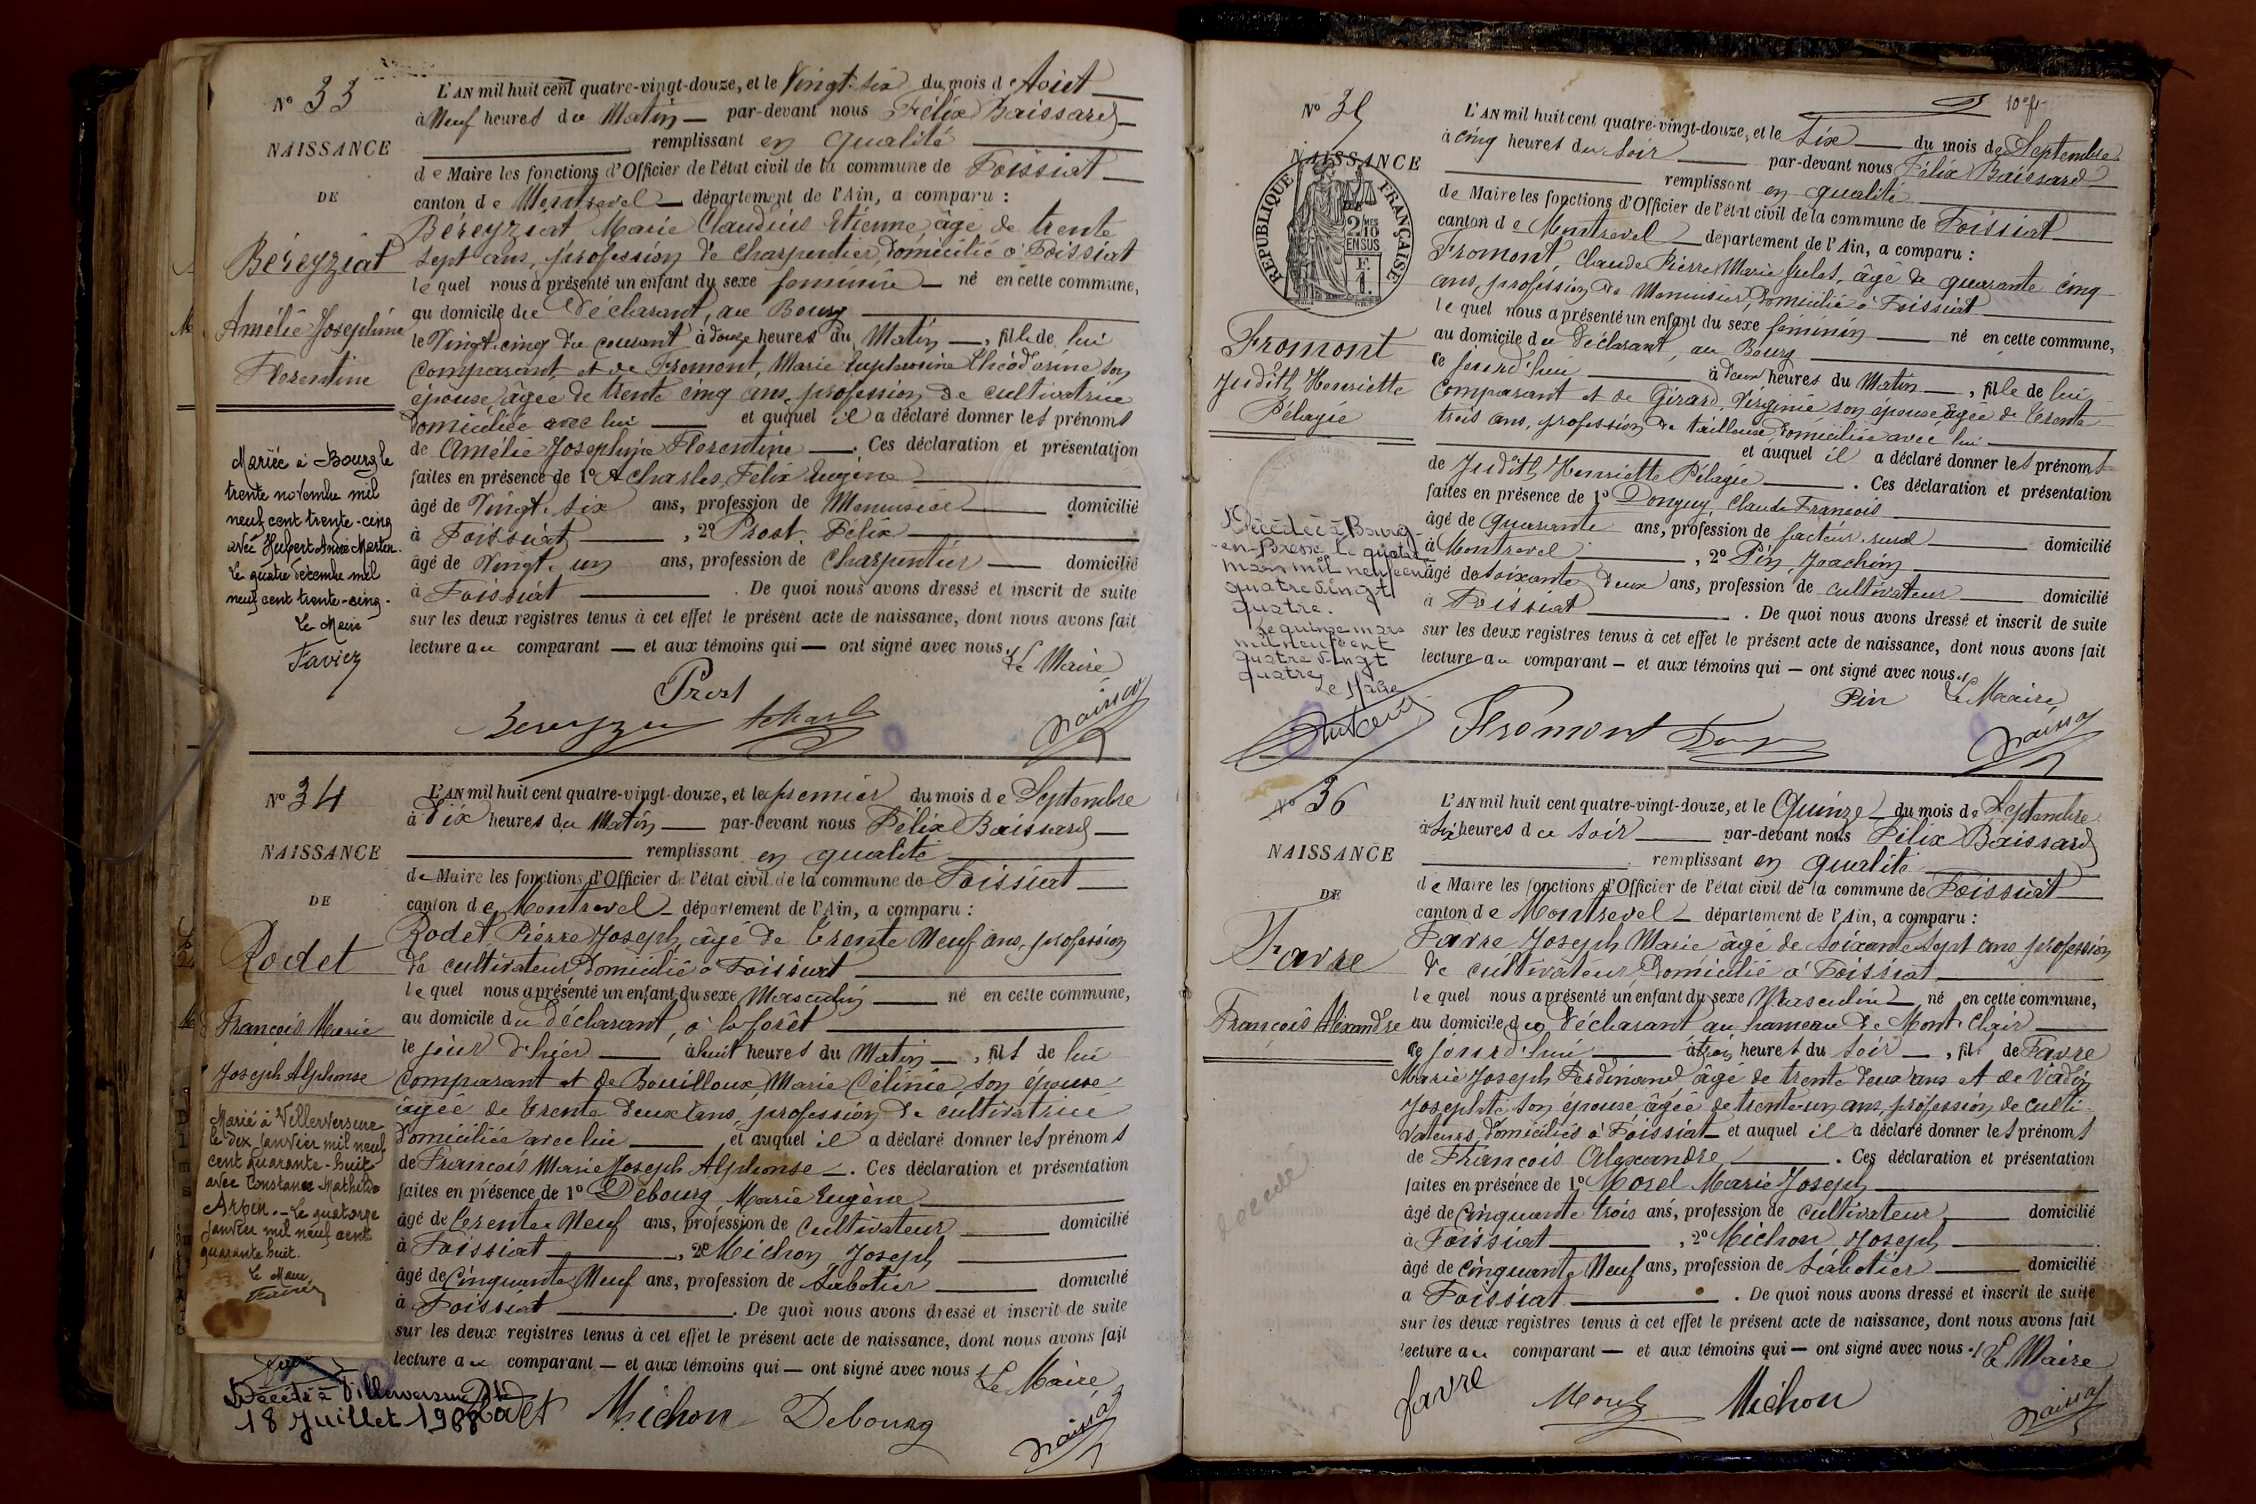 N° 33
NAISSANCE
DE
Béreyziat
Amélie Joséphine
Florentine
Mariée à Bourg le
trente novembre mil
neuf cent trente-cinq
avec Hubert André Martin.
Le quatre décembre mil
neuf cent trente-cinq.
Le Maire
Favier
L'AN mil huit cent quatre-vingt-douze, et le Vingt-six du mois d'Août
à Neuf heures du Matin par-devant nous Félix Baissard
remplissant en qualité
de Maire les fonctions d'Officier de l'état civil de la commune de Foissiat
canton de Montrevel département de l'Ain, a comparu :
Béreyziat Marie Claudius Etienne, âgé de trente
sept ans, profession de charpentier, domicilié à Foissiat
lequel nous a présenté un enfant du sexe féminin né en cette commune,
au domicile du déclarant, au Bourg
le Vingt-cinq du courant à douze heures du Matin, fille de lui
comparant et de Fromont, Marie Euphrosine Théodorine son
épouse, âgée de trente cinq ans, profession de cultivatrice
domiciliée avec lui et auquel il a déclaré donner les prénoms
de Amélie Joséphine Florentine. Ces déclaration et présentation
faites en présence de 1° Acharles, Félix Eugène
âgé de Vingt-six ans, profession de Menuisier domicilié
à Foissiat, 2° Prost, Félix
âgé de Vingt-un ans, profession de Charpentier domicilié
à Foissiat. De quoi nous avons dressé et inscrit de suite
sur les deux registres tenus à cet effet le présent acte de naissance, dont nous avons fait
lecture au comparant — et aux témoins qui — ont signé avec nous.
Le Maire
Prost
Béreyziat Acharles Baissard
N° 34
NAISSANCE
DE
Rodet
François Marie
Joseph Alphonse
Marié à Villerversure
le dix janvier mil neuf
cent quarante-huit
avec Constance Mathilde
Arbin. - Le quatorze
janvier mil neuf cent
quarante huit.
Le Maire,
Favier
Décédé à Villerversure le
18 Juillet 1968
L'AN mil huit cent quatre-vingt-douze, et le premier du mois de Septembre
à Dix heures du Matin par-devant nous Félix Baissard
remplissant en qualité
de Maire les fonctions d'Officier de l'état civil de la commune de Foissiat
canton de Montrevel département de l'Ain, a comparu :
Rodet Pierre Joseph, âgé de trente Neuf ans, profession
de cultivateur domicilié à Foissiat
lequel nous a présenté un enfant du sexe Masculin né en cette commune,
au domicile du déclarant, à la forêt
le jour d'hier à huit heures du Matin, fils de lui
comparant et de Bouilloux Marie Célinie, son épouse
âgée de trente deux ans, profession de cultivatrice
domiciliée avec lui et auquel il a déclaré donner les prénoms
de François Marie Joseph Alphonse. Ces déclaration et présentation
faites en présence de 1° Debourg Marie Eugène
âgé de trente Neuf ans, profession de cultivateur domicilié
à Foissiat, 2° Michon Joseph
âgé de Cinquante Neuf ans, profession de Sabotier domicilié
à Foissiat. De quoi nous avons dressé et inscrit de suite
sur les deux registres tenus à cet effet le présent acte de naissance, dont nous avons fait
lecture au comparant — et aux témoins qui — ont signé avec nous.
Le Maire
Rodet Michon Debourg Baissard
10e f.
N° 35
NAISSANCE
RÉPUBLIQUE FRANÇAISE
2/10 MES EN SUS
F. 1.
Fromont
Judith Henriette
Pélagie
Décédée à Bourg-
en-Bresse le quatre
mars mil neuf cent
quatre vingt
quatre.
Le quinze mars
mil neuf cent
quatre vingt
quatre
Le Maire
L'AN mil huit cent quatre-vingt-douze, et le Six du mois de Septembre
à cinq heures du Soir par-devant nous Félix Baissard
remplissant en qualité
de Maire les fonctions d'Officier de l'état civil de la commune de Foissiat
canton de Montrevel département de l'Ain, a comparu :
Fromont Claude Pierre Marie Jules, âgé de quarante cinq
ans, profession de Menuisier, domicilié à Foissiat
lequel nous a présenté un enfant du sexe féminin né en cette commune,
au domicile du déclarant, au Bourg
ce jourd'hui à deux heures du Matin, fille de lui
comparant et de Girard, Virginie son épouse âgée de trente
trois ans, profession de tailleuse, domiciliée avec lui
et auquel il a déclaré donner les prénoms
de Judith Henriette Pélagie. Ces déclaration et présentation
faites en présence de 1° Donguy, Claude François
âgé de quarante ans, profession de facteur rural domicilié
à Montrevel, 2° Pin, Joachim
âgé de soixante deux ans, profession de cultivateur domicilié
à Foissiat. De quoi nous avons dressé et inscrit de suite
sur les deux registres tenus à cet effet le présent acte de naissance, dont nous avons fait
lecture au comparant — et aux témoins qui — ont signé avec nous.
Pin Le Maire
Fromont Donguy Baissard
N° 36
NAISSANCE
DE
Favre
François Alexandre
décédé
L'AN mil huit cent quatre-vingt-douze, et le Quinze du mois de Septembre
à six heures du Soir par-devant nous Félix Baissard
remplissant en qualité
de Maire les fonctions d'Officier de l'état civil de la commune de Foissiat
canton de Montrevel département de l'Ain, a comparu :
Favre Joseph Marie âgé de soixante sept ans, profession
de cultivateur, domicilié à Foissiat
lequel nous a présenté un enfant du sexe Masculin né en cette commune,
au domicile du déclarant au hameau de Mont Clair
ce jourd'hui à trois heures du Soir, fils de Favre
Marie Joseph Ferdinand âgé de trente deux ans et de Viadin
Josephte son épouse âgée de trente-un ans, profession de culti-
vateurs, domiciliés à Foissiat et auquel il a déclaré donner les prénoms
de François Alexandre. Ces déclaration et présentation
faites en présence de 1° Morel Marie Joseph
âgé de cinquante trois ans, profession de cultivateur domicilié
à Foissiat, 2° Michon Joseph
âgé de cinquante Neuf ans, profession de Sabotier domicilié
à Foissiat. De quoi nous avons dressé et inscrit de suite
sur les deux registres tenus à cet effet le présent acte de naissance, dont nous avons fait
lecture au comparant — et aux témoins qui — ont signé avec nous.
Le Maire
favre Morel Michon Baissard